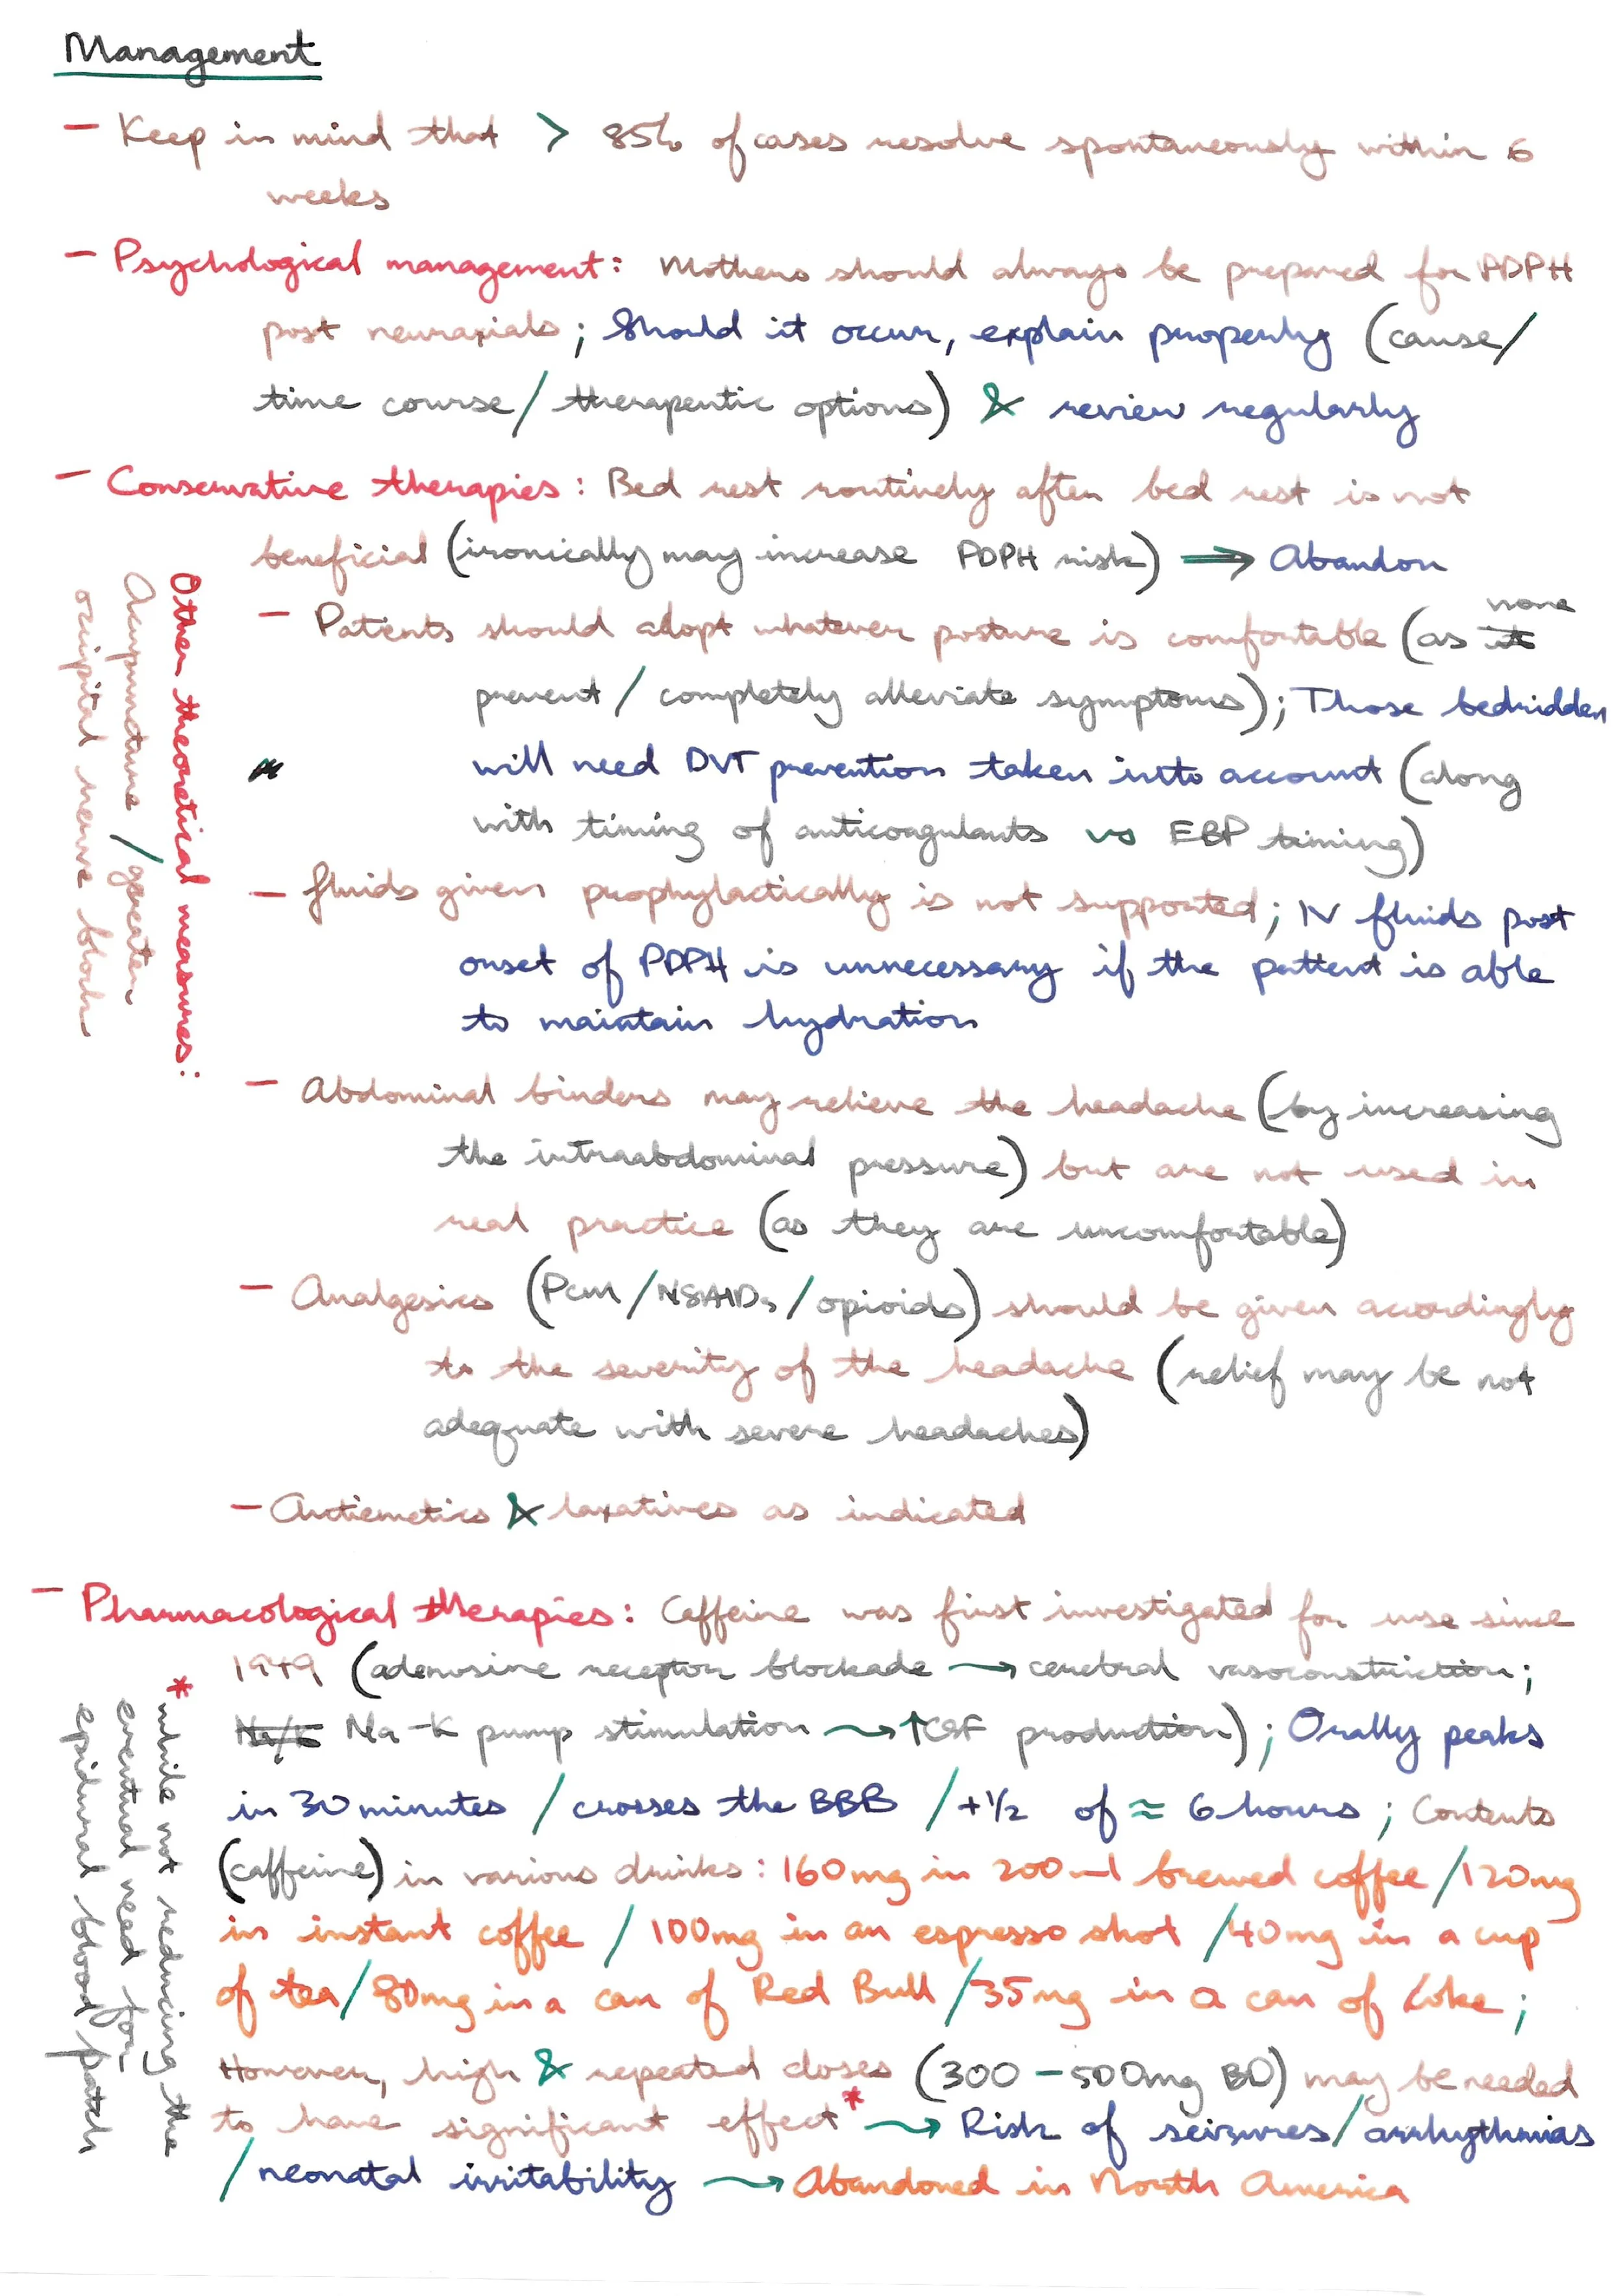 Management
- Keep in mind that > 85% of cases resolve spontaneously within 6
weeks
- Psychological management: Mothers should always be prepared for PDPH
post neuraxials; Should it occur, explain properly (cause/
time course/therapeutic options) & review regularly
- Conservative therapies: Bed rest routinely after bed rest is not
beneficial (ironically may increase PDPH risk) ⇒ Abandon
- Patients should adopt whatever posture is comfortable (as none
prevent / completely alleviate symptoms); Those bedridden
will need DVT prevention taken into account (along
with timing of anticoagulants vs EBP timing)
- fluids given prophylactically is not supported; IV fluids post
onset of PDPH is unnecessary if the patient is able
to maintain hydration
- Abdominal binders may relieve the headache (by increasing
the intraabdominal pressure) but are not used in
real practice (as they are uncomfortable)
- Analgesics (Pcm/NSAIDs/opioids) should be given accordingly
to the severity of the headache (relief may be not
adequate with severe headaches)
- Antiemetics & laxatives as indicated
Other theoretical measures:
Acupuncture / greater
occipital nerve block
- Pharmacological therapies: Caffeine was first investigated for use since
1949 (adenosine receptor blockade → cerebral vasoconstriction;
Na/K Na-K pump stimulation → ↑CSF production); Orally peaks
in 30 minutes / crosses the BBB / t1/2 of ≈ 6 hours; Contents
(caffeine) in various drinks: 160mg in 200ml brewed coffee / 120mg
in instant coffee / 100mg in an espresso shot / 40mg in a cup
of tea / 80mg in a can of Red Bull / 35mg in a can of Coke;
However, high & repeated doses (300 - 500mg BD) may be needed
to have significant effect* → Risk of seizures / arrhythmias
/ neonatal irritability → Abandoned in North America
* while not reducing the
eventual need for
epidural blood patch